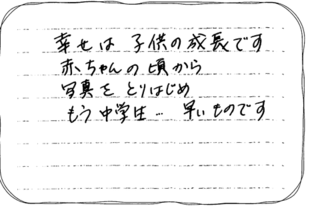 幸せは 子供の成長です
赤ちゃんの頃から
写真を とりはじめ
もう 中学生… 早いものです